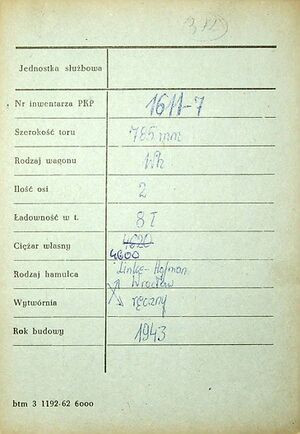 312)
Jednostka służbowa
Nr inwentarza PKP 1611-7
Szerokość toru 785 mm
Rodzaj wagonu Wh
Ilość osi 2
Ładowność w t. 8 T
Ciężar własny 4620
4600
Rodzaj hamulca Linke-Hofman
Wrocław
Wytwórnia ręczny
Rok budowy 1943
btm 3 1192-62 6000